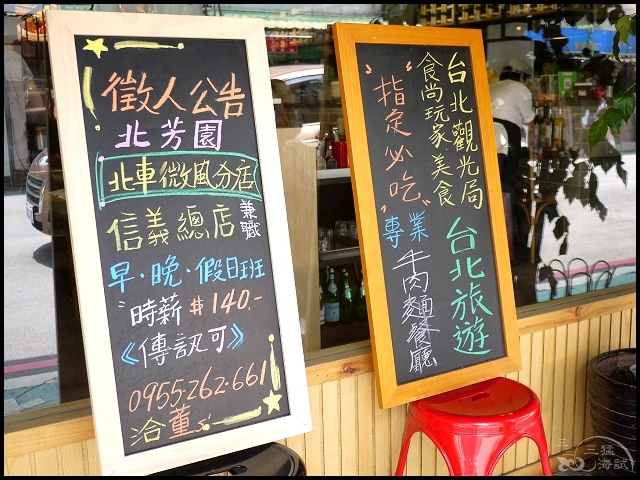 徵人公告
北芳園
北車微風分店
信義總店 兼職
早·晚·假日班
時薪 #140.-
《傳訊可》
0955-262-661
洽董s
台北觀光局
食尚玩家美食
"指定必吃"
台北旅遊
專業牛肉麵餐廳
三猛
海試